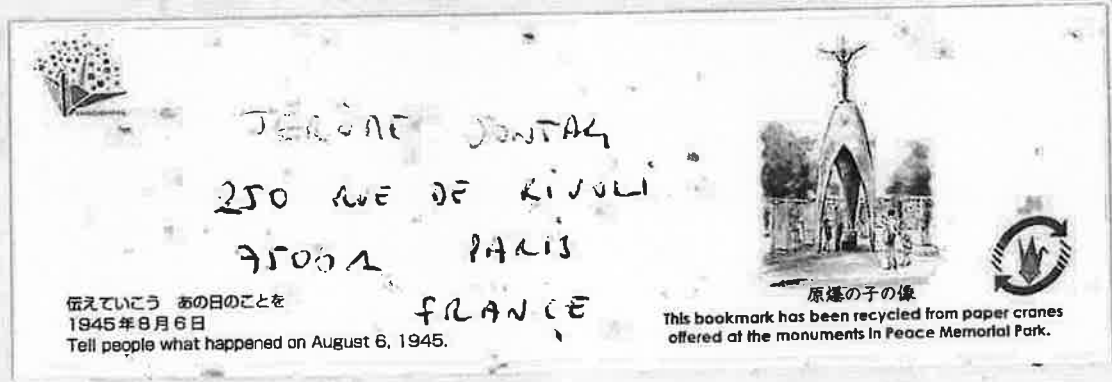 JÉRÔME SONTAG
250 RUE DE RIVOLI
75001 PARIS
FRANCE
伝えていこう あの日のことを
1945年8月6日
Tell people what happened on August 6, 1945.
原爆の子の像
This bookmark has been recycled from paper cranes
offered at the monuments in Peace Memorial Park.